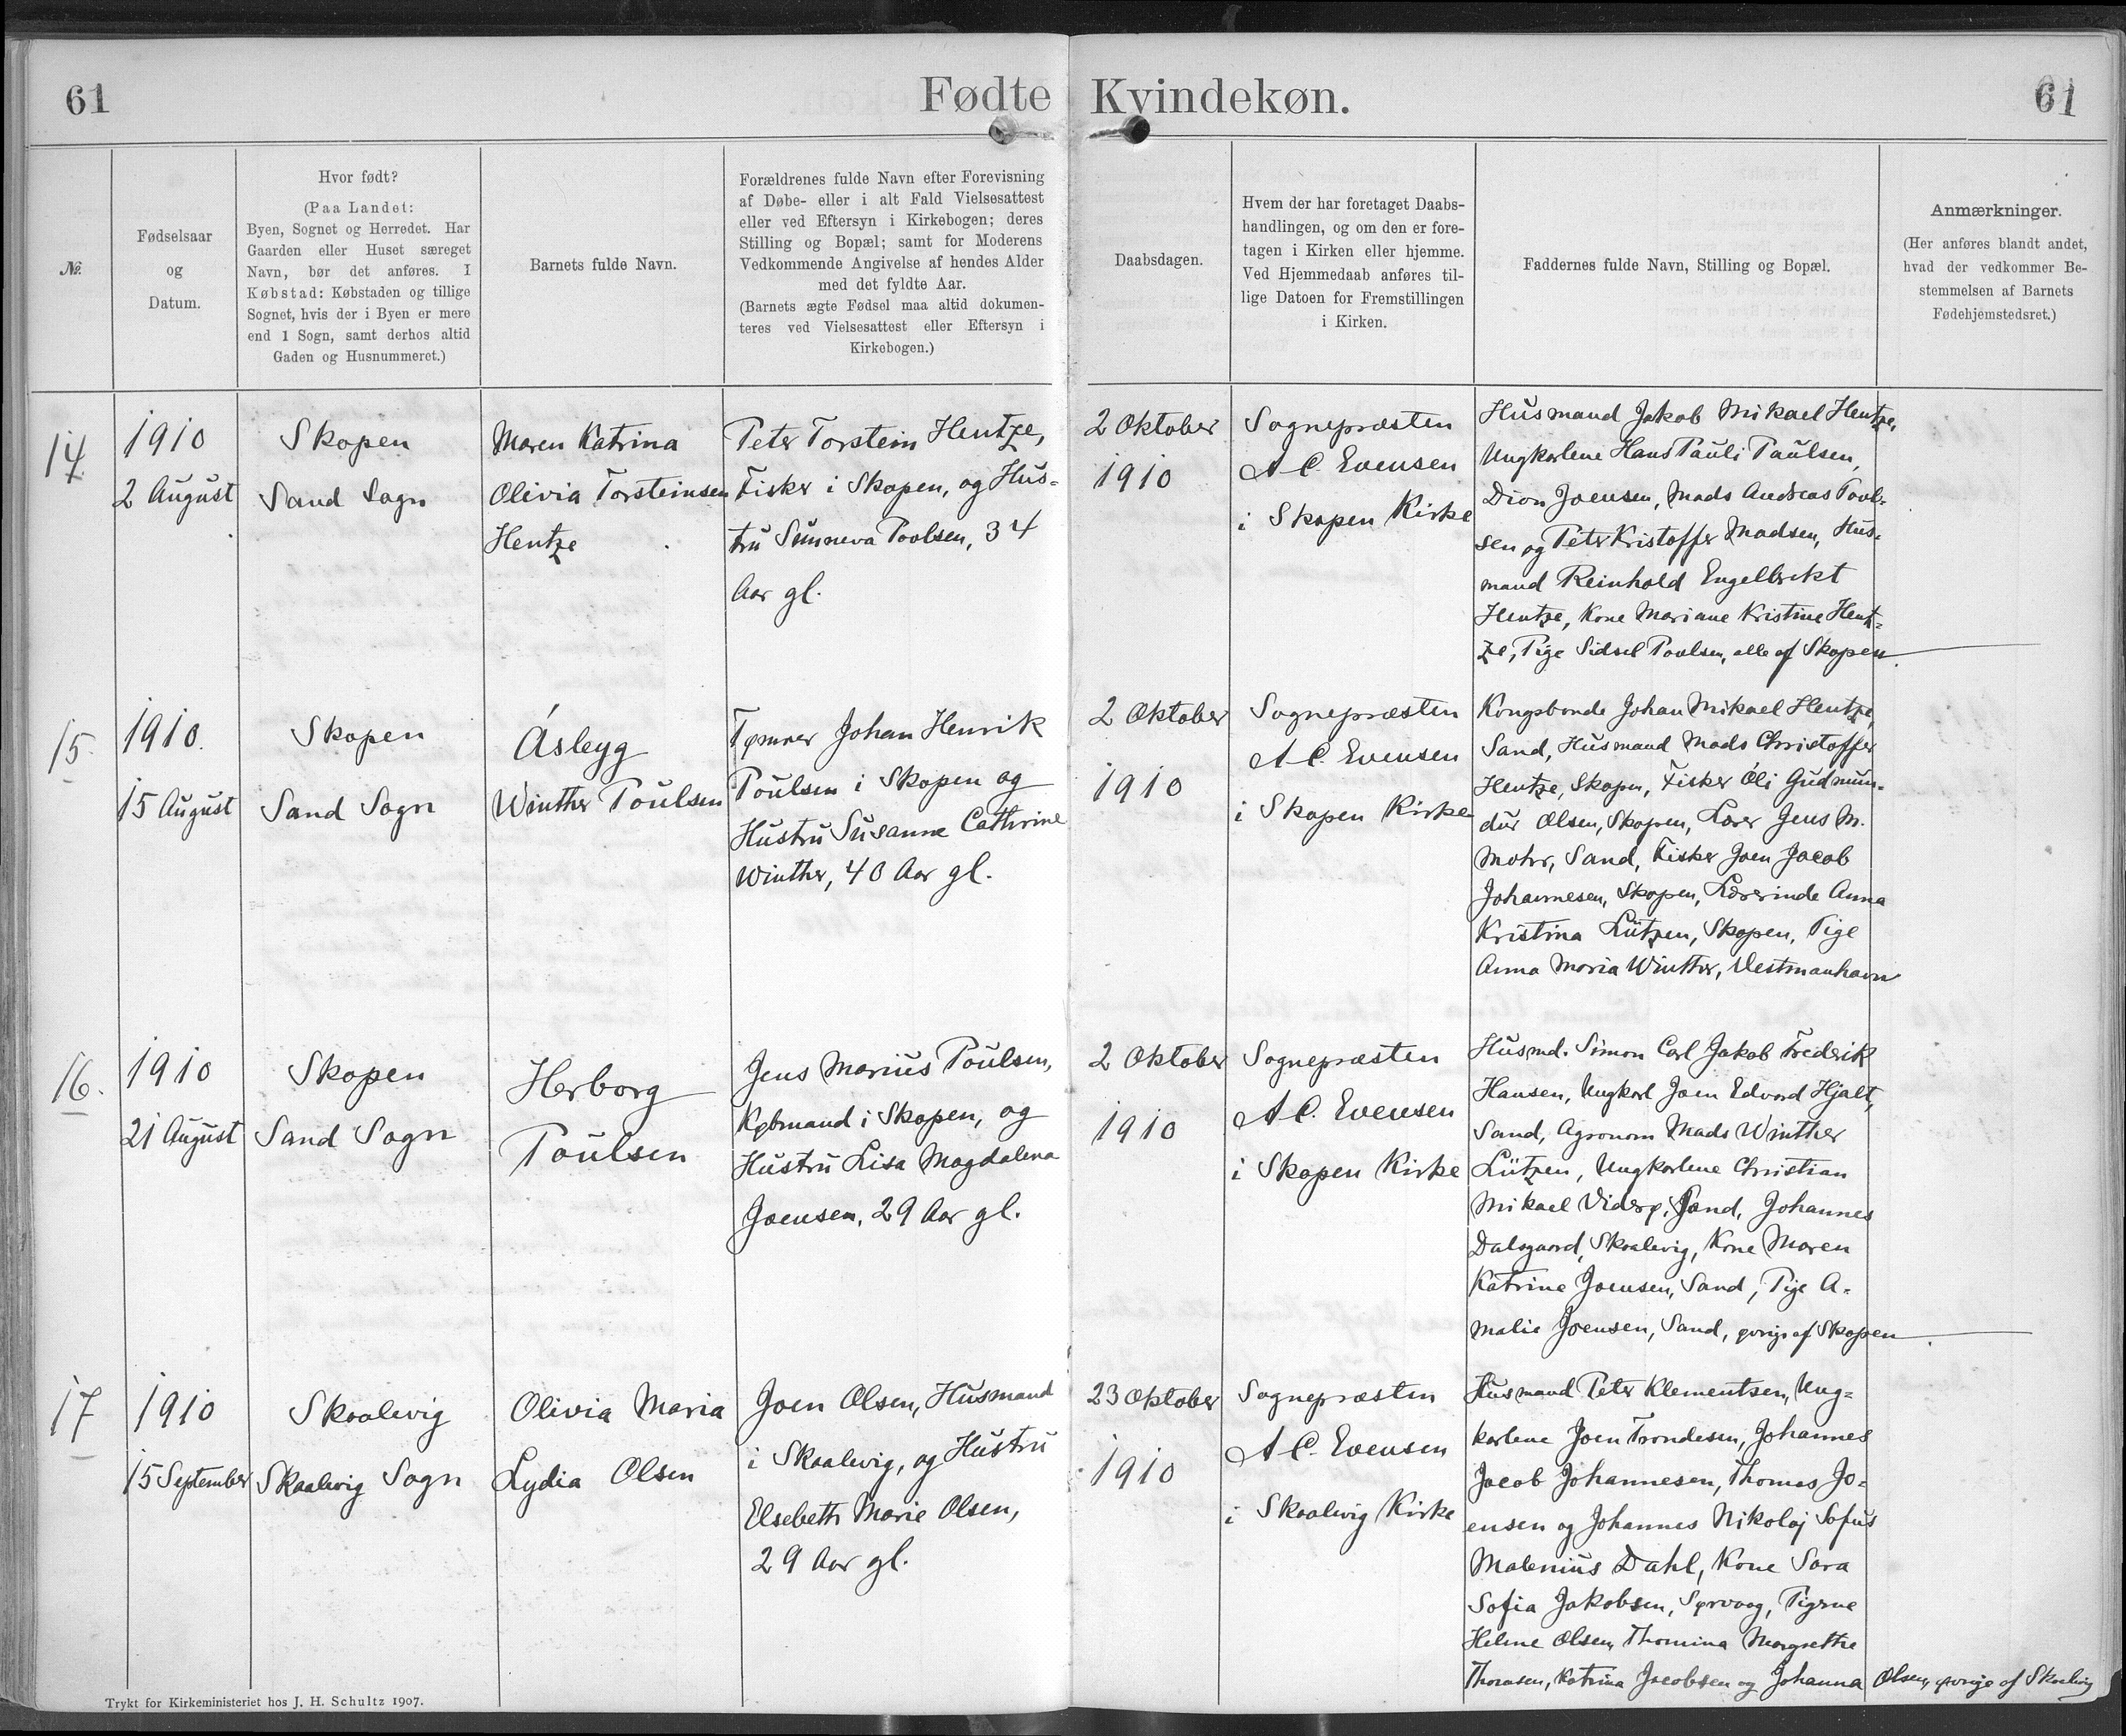 61
Fødte
Kvindekøn.
61
№
Fødselsaar
og
Datum.
Hvor født?
(Paa Landet:
Byen, Sognet og Herredet. Har
Gaarden eller Huset særeget
Navn, bør det anføres. I
Købstad: Købstaden og tillige
Sognet, hvis der i Byen er mere
end 1 Sogn, samt derhos altid
Gaden og Husnummeret.)
Barnets fulde Navn.
Forældrenes fulde Navn efter Forevisning
af Døbe- eller i alt Fald Vielsesattest
eller ved Eftersyn i Kirkebogen; deres
Stilling og Bopæl; samt for Moderens
Vedkommende Angivelse af hendes Alder
med det fyldte Aar.
(Barnets ægte Fødsel maa altid dokumen-
teres ved Vielsesattest eller Eftersyn i
Kirkebogen.)
Daabsdagen.
Hvem der har foretaget Daabs-
handlingen, og om den er fore-
tagen i Kirken eller hjemme.
Ved Hjemmedaab anføres til-
lige Datoen for Fremstillingen
i Kirken.
Faddernes fulde Navn, Stilling og Bopæl.
Anmærkninger.
(Her anføres blandt andet,
hvad der vedkommer Be-
stemmelsen af Barnets
Fødehjemstedsret.)
14
1910
2 August
Skopen
Sand Sogn
Maren Katrina
Olivia Torsteinsen
Hentze
Peter Torstein Hentze,
Fisker i Skopen, og Hus-
tru Sunneva Poulsen, 34
Aar gl.
2 Oktober
1910
Sognepræsten
A C. Evensen
i Skopen Kirke
Husmand Jakob Mikael Hentze,
Ungkarlene Hans Pauli Paulsen,
Dion Joensen, Mads Andreas Poul-
sen og Peter Kristoffer Madsen, Hus-
mand Reinhold Engelbrekt
Hentze, Kone Mariane Kristine Hent-
ze, Pige Sidsel Poulsen, alle af Skopen.
15.
1910.
15 August
Skopen
Sand Sogn
Ásleyg
Winther Poulsen
Tømrer Johan Henrik
Poulsen i Skopen og
Hustru Susanne Cathrine
Winther, 40 Aar gl.
2 Oktober
1910
Sognepræsten
A C. Evensen
i Skopen Kirke
Kongsbonde Johan Mikael Hentze,
Sand, Husmand Mads Christoffer
Hentze, Skopen, Fisker Óli Gudmun-
dur Olsen, Skopen, Lærer Jens M.
Mohr, Sand, Fisker Joen Jacob
Johannesen, Skopen, Lærerinde Anna
Kristina Lützen, Skopen, Pige
Anna Maria Winther, Vestmanhavn
16.
1910
21 August
Skopen
Sand Sogn
Herborg
Poulsen
Jens Marius Poulsen,
Købmand i Skopen, og
Hustru Lisa Magdalena
Joensen, 29 Aar gl.
2 Oktober
1910
Sognepræsten
A C. Evensen
i Skopen Kirke
Husmd. Simon Carl Jakob Frederik
Hansen, Ungkarl Joen Edvard Hjalt,
Sand, Agronom Mads Winther
Lützen, Ungkarlene Christian
Mikael Viderø, Sand, Johannes
Dalsgaard, Skaalevig, Kone Maren
Katrine Joensen, Sand, Pige A-
malie Joensen, Sand, øvrige af Skopen.
17
1910
15 September
Skaalevig
Skaalevig Sogn
Olivia Maria
Lydia Olsen
Joen Olsen, Husmand
i Skaalevig, og Hustru
Elsebeth Marie Olsen,
29 Aar gl.
23 Oktober
1910
Sognepræsten
A C. Evensen
i Skaalevig Kirke
Husmand Peter Klementsen, Ung-
karlene Joen Trondesen, Johannes
Jacob Johannesen, Thomas Jo-
ensen og Johannes Nikolaj Sofus
Malenius Dahl, Kone Sara
Sofia Jakobsen, Sørvaag, Pigerne
Helene Olsen, Thomina Margrethe
Thomsen, Katrina Jacobsen og Johanna Olsen, øvrige af Skaalevig
Trykt for Kirkeministeriet hos J. H. Schultz 1907.